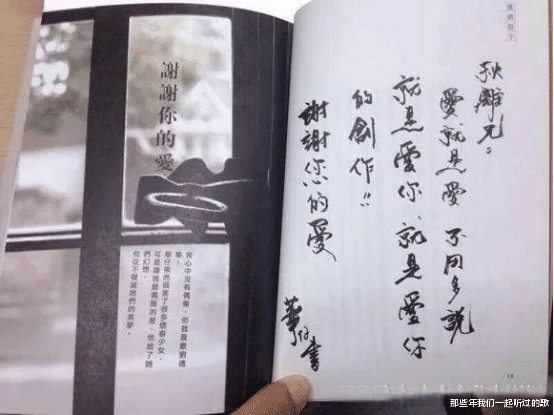 秋離兄:
愛就是愛 不用多說
就是愛你、就是愛你
的創作!!
謝謝您的愛
華仔書
謝謝你的愛
我心中沒有偶像，但我喜歡劉德
華！
華仔果然禍害了很多懷春少女，
可是讓我最佩服的是，他給了她
們幻想，
但從不破滅她們的美夢。
那些年我们一起听过的歌